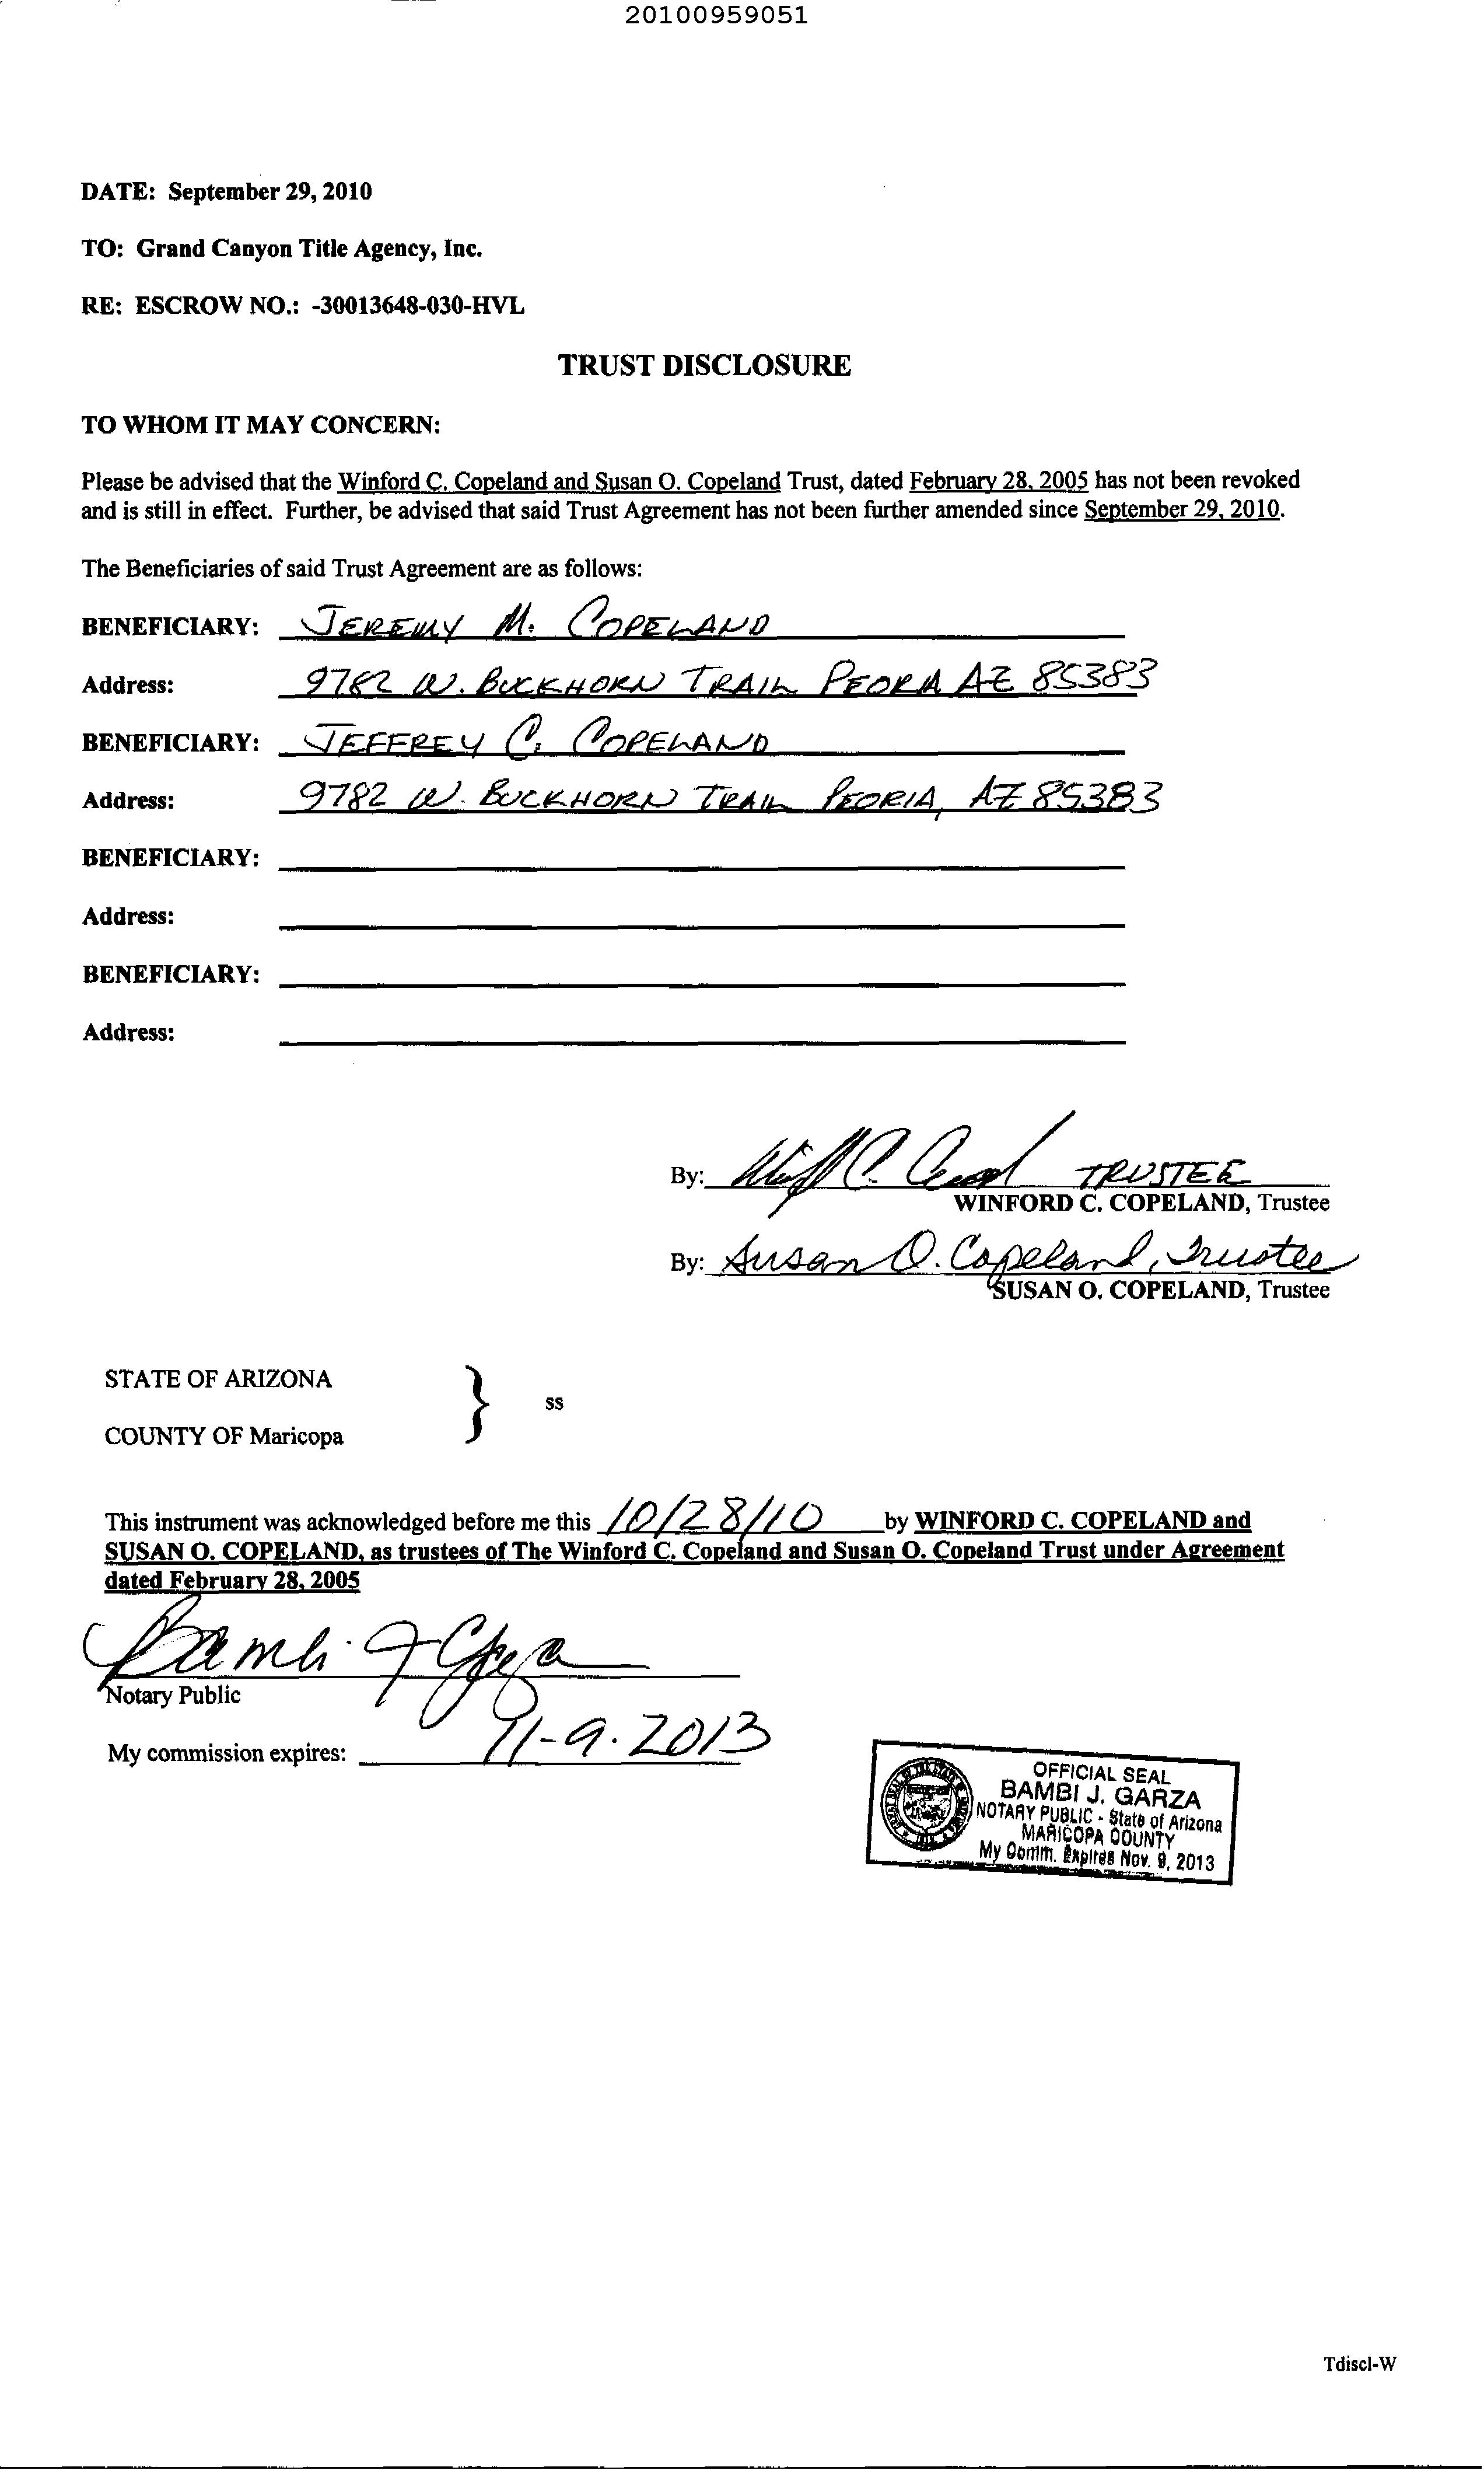 20100959051
DATE: September 29, 2010
TO: Grand Canyon Title Agency, Inc.
RE: ESCROW NO.: -30013648-030-HVL
TRUST DISCLOSURE
TO WHOM IT MAY CONCERN:
Please be advised that the Winford C. Copeland and Susan O. Copeland Trust, dated February 28, 2005 has not been revoked
and is still in effect. Further, be advised that said Trust Agreement has not been further amended since September 29, 2010.
The Beneficiaries of said Trust Agreement are as follows:
BENEFICIARY: JEREMY M. COPELAND
Address: 9782 W. BUCKHORN TRAIL PEORIA AZ 85383
BENEFICIARY: JEFFREY C. COPELAND
Address: 9782 W. BUCKHORN TRAIL PEORIA, AZ 85383
BENEFICIARY:
Address:
BENEFICIARY:
Address:
By: TRUSTEE
WINFORD C. COPELAND, Trustee
By: Susan O. Copeland, Trustee
SUSAN O. COPELAND, Trustee
STATE OF ARIZONA
} ss
COUNTY OF Maricopa
This instrument was acknowledged before me this 10/28/10 by WINFORD C. COPELAND and
SUSAN O. COPELAND, as trustees of The Winford C. Copeland and Susan O. Copeland Trust under Agreement
dated February 28, 2005
Bambi J Garza
Notary Public
My commission expires: 11-9-2013
OFFICIAL SEAL
BAMBI J. GARZA
NOTARY PUBLIC - State of Arizona
MARICOPA COUNTY
My Comm. Expires Nov. 9, 2013
Tdiscl-W